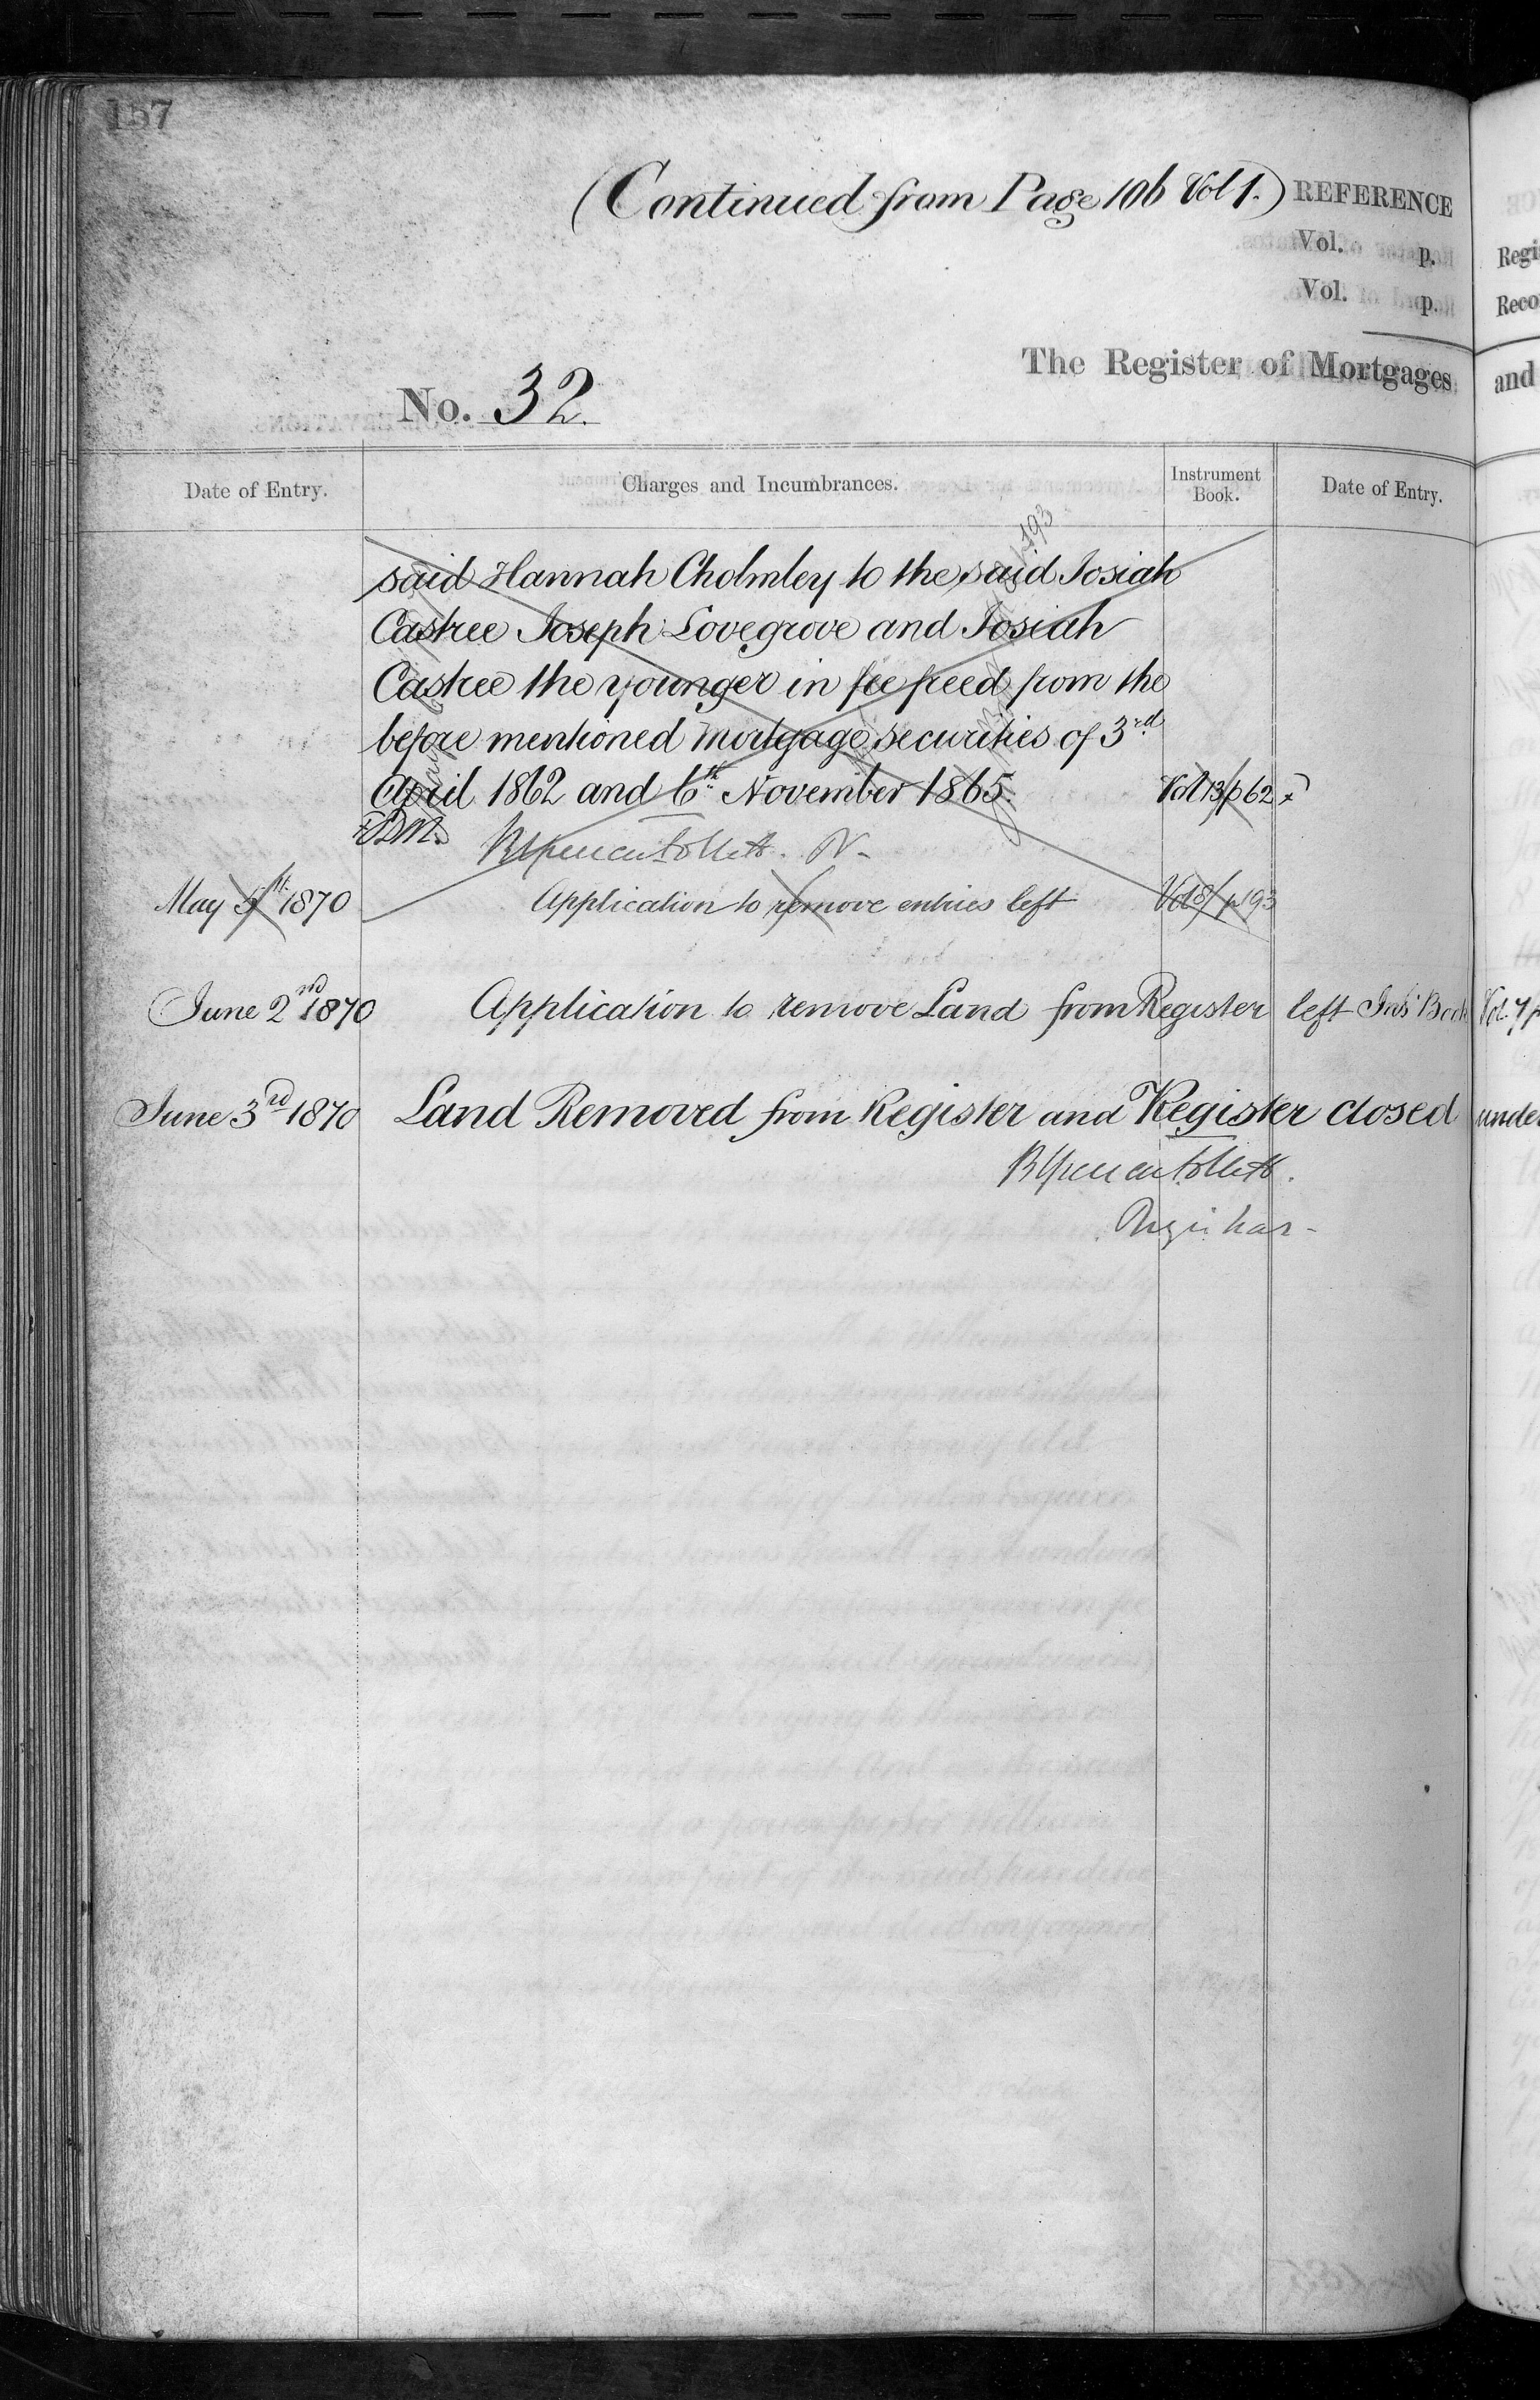 157
(Continued from Page 106 Vol 1.)
REFERENCE
Vol. p.
Vol. p.
The Register of Mortgages
No. 32.
Date of Entry. Charges and Incumbrances. Instrument Book. Date of Entry.
said Hannah Cholmley to the said Josiah
Castree Joseph Lovegrove and Josiah
Castree the younger in fee freed from the
before mentioned mortgage securities of 3rd
April 1862 and 6th November 1865. Vol 13/p 62
BrentSpencer Follett. R.
May 5th 1870 Application to remove entries left Vol 8/p193
June 2nd 1870 Application to remove Land from Register left Ins Book Vol. 7 p
June 3rd 1870 Land Removed from Register and Register closed under
BrentSpencer Follett.
Registrar
Regi
Reco
and